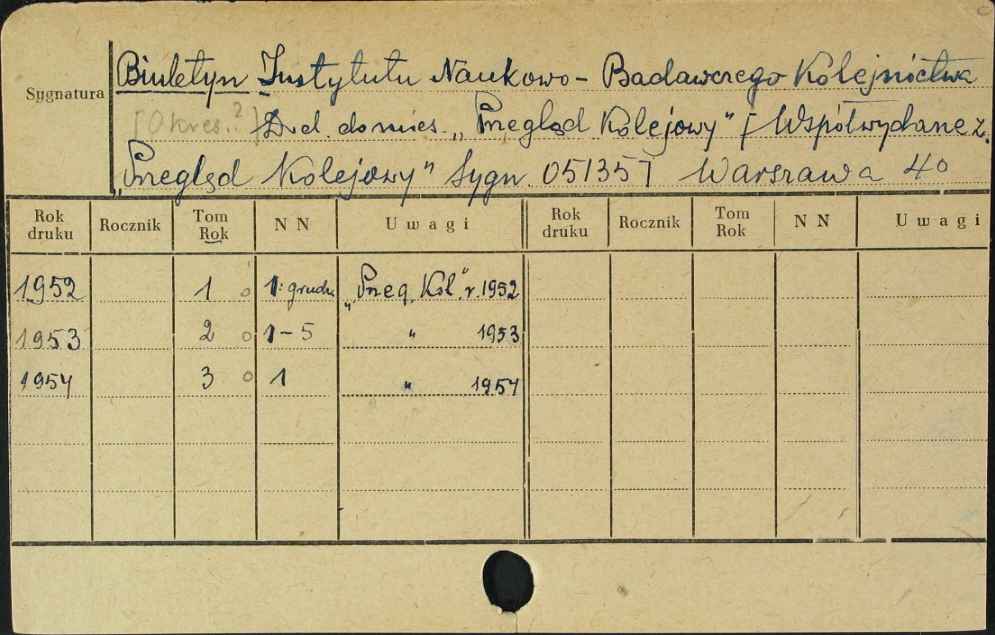 Sygnatura
Biuletyn Instytutu Naukowo-Badawczego Kolejnictwa
[Okres.?] Dod. do mies. „Przegląd Kolejowy" [Współwydane z.
„Przegląd Kolejowy" Sygn. 051357] Warszawa 4°
Rok druku Rocznik Tom Rok NN Uwagi Rok druku Rocznik Tom Rok NN Uwagi
1952 1 1: grudz „Przeg. Kol." r. 1952
1953 2 1-5 " 1953
1954 3 1 " 1954